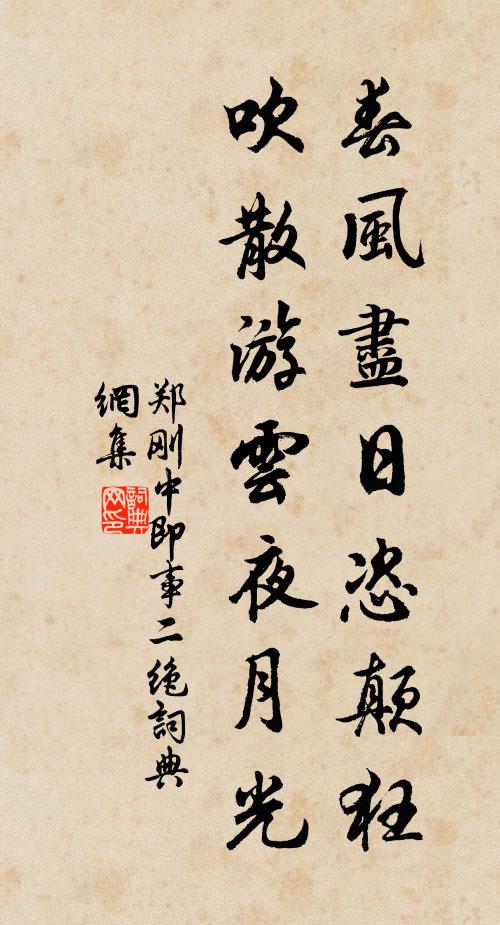 春風盡日恣顛狂
吹散游雲夜月光
郑刚中即事二绝詞典
網集
詞典网印